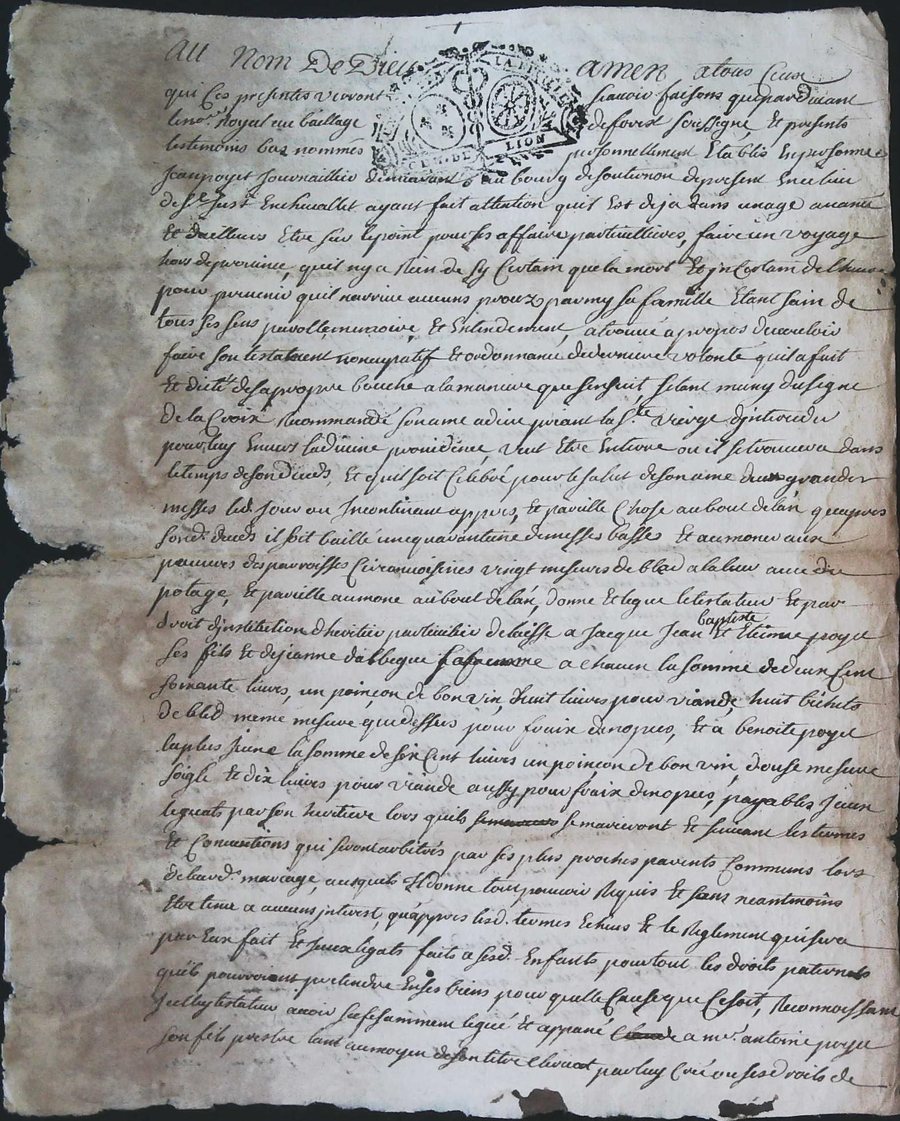 Au Nom De Dieu amen atous Ceux
qui Ces presentes verront scavoir faisons que pardevant
le no.re Royal au baillage de forix soussigne Et presents
les temoins bas nommes personnellement Etablis En personne
Jean poyet Journaillier demeurant au bourg de souternon de present En ce lieu
de S.t Just En chevallet ayant fait attention quil Est deja dans un age avancé
Et dailleurs Etre sur le point pour ses affaires particullieres, faire un voyage
hors de province, quil ny a Rien de sy Certain que la mort Et jncertain de lheure
pour prevenir quil narrive aucuns proux parmy sa famille Etant sain de
tous ses sens parolle, memoire, Et Entendement, a trouvé a propos de vouloir
faire son testament noncupatif Et ordonnance de derniere volonté quil a fait
Et dicté de sa propre bouche a la maniere que sensuit, setant muny du signe
de la Croix Recommandé son ame a dieu priant la S.te vierge djnterceder
pour luy Envers la divine providence veut Etre Enterré ou il se trouvera dans
le temps de son deceds, Et quil soit Celebré pour le salut de son ame deux grandes
messes led. Jour ou Incontinant appres, Et pareille Chose au bout de lan quapres
sond. deceds il soit baillé une quarantaine de messes basses Et aumoner aux
pauvres des parroisses Circonvoisines vingt mesures de bled a la leur avec du
potage, Et pareille aumone au bout de lan, donne Et legue le testateur Et par
droit djnstitution dheritier particulier delaisse a Jacque Jean baptiste Et Etienne poyet
ses fils Et de jeanne dabbegue sa femme a chacun la somme de deux Cent
soixante livres, un poinçon de bon vin, huit livres pour viande, huit bichets
de bled meme mesure que dessus pour fraix de nopces, Et a benoite poyet
la plus jeune la somme de six Cent livres un poinçon de bon vin, douse mesure
soigle Et dix livres pour viande aussy pour fraix de nopces, payables Jceux
legats par son heritiere lors quils se marieront Et suivant les termes
Et Conventions qui seront arbitrés par ses plus proches parents Communs lors
de leurd. mariage, ausquels Il donne tout pouvoir Requis Et sans neantmoins
Etre tenu a aucuns jnterest, quappres lesd. termes Echus Et le Reglement qui sera
par Eux fait Et Jceux legats faits a sesd. Enfants pour tout les droits paternels
quils pourroient pretendre En ses biens pour quelle Cause que Ce soit, Reconnoissant
Jcelluy testateur avoir suffisamment legué Et appané a m.re antoine poyet
son fils prestre tant au moyen de son titre Clerical par luy Créé ou ses droits de